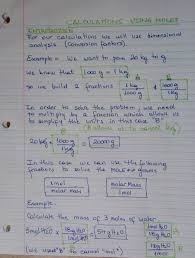 CALCULATIONS USING MOLES
For our calculations we will use dimensional
analysis (Conversion factors).
Example = We want to pass 20 kg to g
We know that 1000 g = 1 kg
So we build 2 fractions 1 kg / 1000 g 1000 g / 1 kg
In order to solve the problem, we need
to multiply by a fraction which allows us
to simplify the units in this case "B"
(B allows us to cancel kg)
20 kg x 1000 g / 1 kg = 20000 g
In this case we can use the following
fractions to solve the mass in grams
1 mol / molar Mass molar Mass / 1 mol
Example
Calculate the mass of 3 moles of water
3 mol H2O x 18 g H2O / 1 mol H2O = 54 g H2O
(we used "B" to cancel "mol")